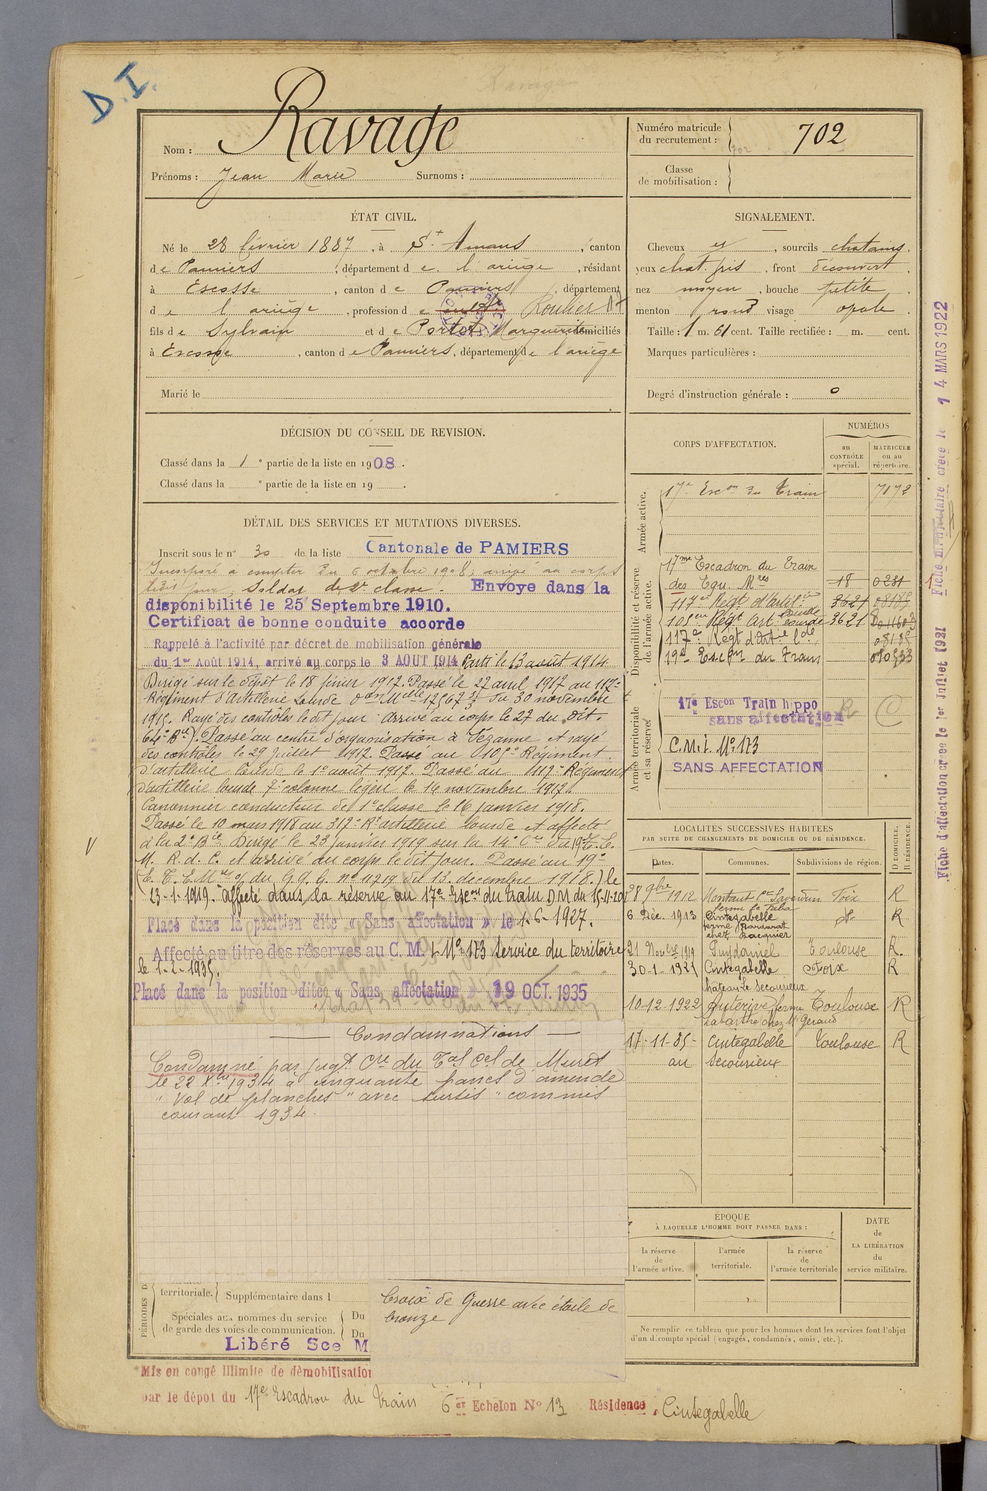 D.I.
Nom : Ravage
Prénoms : Jean Marie Surnoms :
Numéro matricule du recrutement : 702
Classe de mobilisation :
ÉTAT CIVIL.
Né le 28 février 1887, à St Amans, canton
de Pamiers, département de l'ariège, résidant
à Escosse, canton de Pamiers, département
de l'ariège, profession de Roulier
fils de Sylvain et de Portet Marguerite domiciliés
à Escosse, canton de Pamiers, département de l'ariège
Marié le
SIGNALEMENT.
Cheveux et, sourcils chatains.
yeux chat. gris, front découvert.
nez moyen, bouche petite
menton rond visage ovale.
Taille : 1 m. 61 cent. Taille rectifiée : m. cent.
Marques particulières :
Degré d'instruction générale : 0
DÉCISION DU CONSEIL DE REVISION.
Classé dans la 1e partie de la liste en 1908.
Classé dans la e partie de la liste en 19 .
DÉTAIL DES SERVICES ET MUTATIONS DIVERSES.
Inscrit sous le n° 30 de la liste Cantonale de PAMIERS
Incorporé à compter du 6 octobre 1908, arrivé au corps
le dit jour, Soldat de 2e classe. Envoye dans la
disponibilité le 25 Septembre 1910.
Certificat de bonne conduite accorde
Rappelé à l'activité par décret de mobilisation générale
du 1er Août 1914, arrivé au corps le 3 AOUT 1914 Parti le 13 août 1914
Dirigé sur le dépôt le 18 février 1917. Passé le 27 avril 1917 au 117e
Régiment d'artillerie Lourde du 30 novembre
1915. Rayé des contrôles le dit jour. arrivé au corps le 27 du dit.
Passé au centre d'organisation à Sézanne et rayé
des contrôles le 29 Juillet 1917. Passé au 105e Régiment
d'artillerie Lourde le 1er août 1917. Passé au 117e Régiment
d'artillerie lourde 7e colonne légère le 14 novembre 1917.
Canonnier conducteur de 1e classe le 16 janvier 1918.
Passé le 10 mars 1918 au 317e Rt artillerie lourde et affecté
à la 2e Bie Dirigé le 23 janvier 1919 sur la 14e Cie du 19e
et arrivé au corps le dit jour. Passé au 19e
du G.Q.G. n° 11719 du 13 décembre 1918.) le
23-1-1919. Affecté dans la réserve au 17e Escon du train DM du 15-11-20
Placé dans la position dite « Sans affectation » le 1-6-1927.
Affecté au titre des réserves au C. M. I. N° 173 Service du territoire
le 1-2-1935.
Placé dans la position ditee « Sans affectation 19 OCT. 1935
Condamnations
Condamné par jugt Cre du Tal Cel de Muret
le 22 Xbre 1934 à cinquante francs d'amende
"Vol de planches" avec sursis "commis
courant 1934.
CORPS D'AFFECTATION.
NUMÉROS
au CONTRÔLE spécial.
MATRICULE ou au répertoire.
Armée active.
17e Escon du Train 7172
Disponibilité et réserve de l'armée active.
17me Escadron du Train
des Equ. Mres 18
117e Régt d'Artie lourde 3621
105me Régt Art. Lourde 3621
117e Régt d'Artie Lde
19e Escon du Train
Armée territoriale et sa réserve
17e Escon Train hippo
sans affectation
C.M.I. N° 173
SANS AFFECTATION
LOCALITÉS SUCCESSIVES HABITÉES
PAR SUITE DE CHANGEMENTS DE DOMICILE OU DE RÉSIDENCE.
Dates. Communes. Subdivisions de région. D. DOMICILE. R. RÉSIDENCE.
28 9bre 1912 Montaut Foix R
6 Déc. 1913 Cintegabelle do R
21 Novbre 1919 Puydaniel Toulouse R.
30-1-1921 Cintegabelle Foix R
10-12-1922 Auterive Toulouse R
Labarthe chez Mr Géraud
17-11-35- Cintegabelle Toulouse R
au Secourieu
ÉPOQUE
À LAQUELLE L'HOMME DOIT PASSER DANS :
la réserve de l'armée active.
l'armée territoriale.
la réserve de l'armée territoriale
DATE de LA LIBÉRATION du service militaire.
Ne remplir ce tableau que pour les hommes dont les services font l'objet
d'un décompte spécial (engagés, condamnés, omis, etc.).
PÉRIODES D
territoriale. Supplémentaire dans l
Spéciales aux hommes du service Du
de garde des voies de communication. Du
Croix de Guerre avec étoile de
bronze
Libéré Sce M
Mis en congé illimité de démobilisation
par le dépot du 17e Escadron du Train 6e Echelon N° 13 Résidence, Cintegabelle
Fiche d'affectation créée le 1er Juillet 1921
Fiche créée le 14 MARS 1922